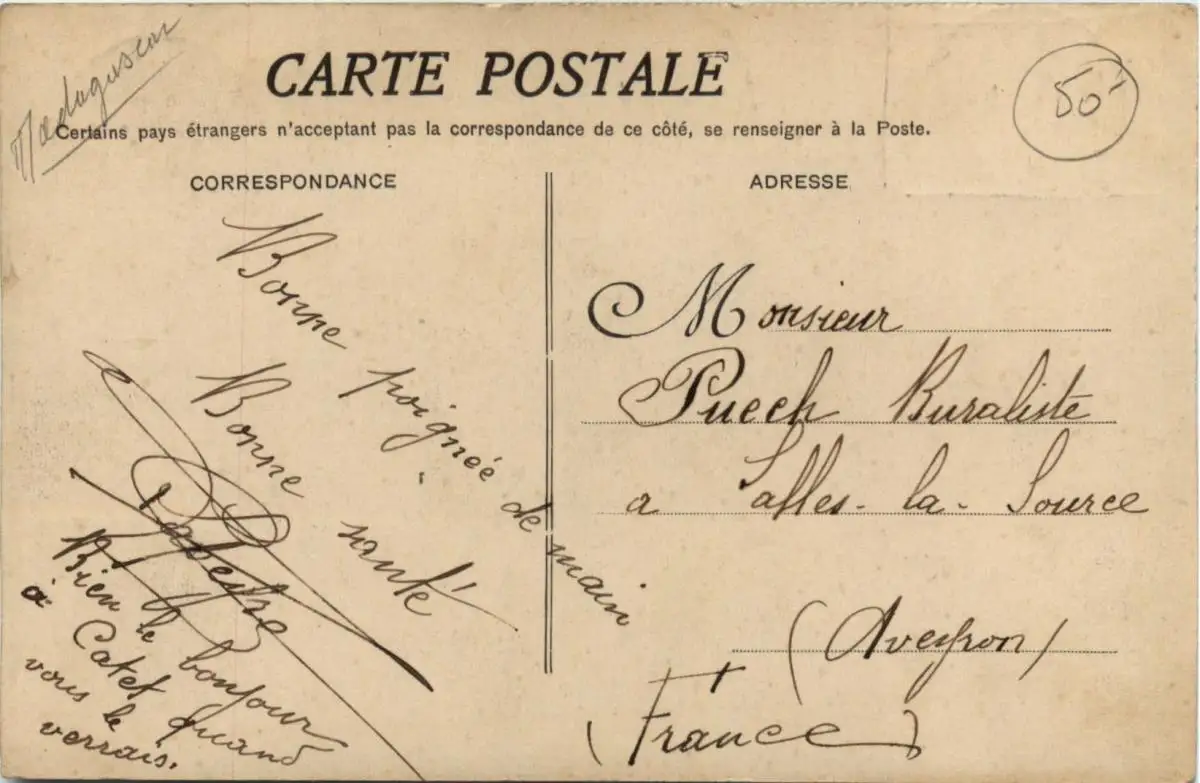 Madagascar
CARTE POSTALE
50
Certains pays étrangers n'acceptant pas la correspondance de ce côté, se renseigner à la Poste.
CORRESPONDANCE
Bonne poignée de main
Bonne santé
Bien le bonjour
à Catet quand
vous le
verrais.
ADRESSE
Monsieur
Puech Buraliste
a Salles-la-Source
(Aveyron)
(France)